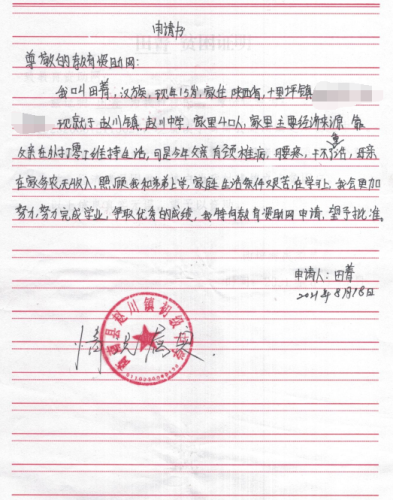 申请书
尊敬的教育资助网:
我叫田菁,汉族,现年15岁,家住陕西省,十里坪镇
现就于赵川镇,赵川中学,家里4口人,家里主要经济来源靠
父亲在外打零工维持生活,可是今年父亲有颈椎病,腰疼,
在家务农无收入,照顾我和弟弟上学,家庭生活条件艰苦,在学习上,我会更加
努力,努力完成学业,争取优秀的成绩,我特向教育资助网申请,望予批准。
申请人:田菁
2021年8月18日
情况属实.
商南县赵川镇初级中学